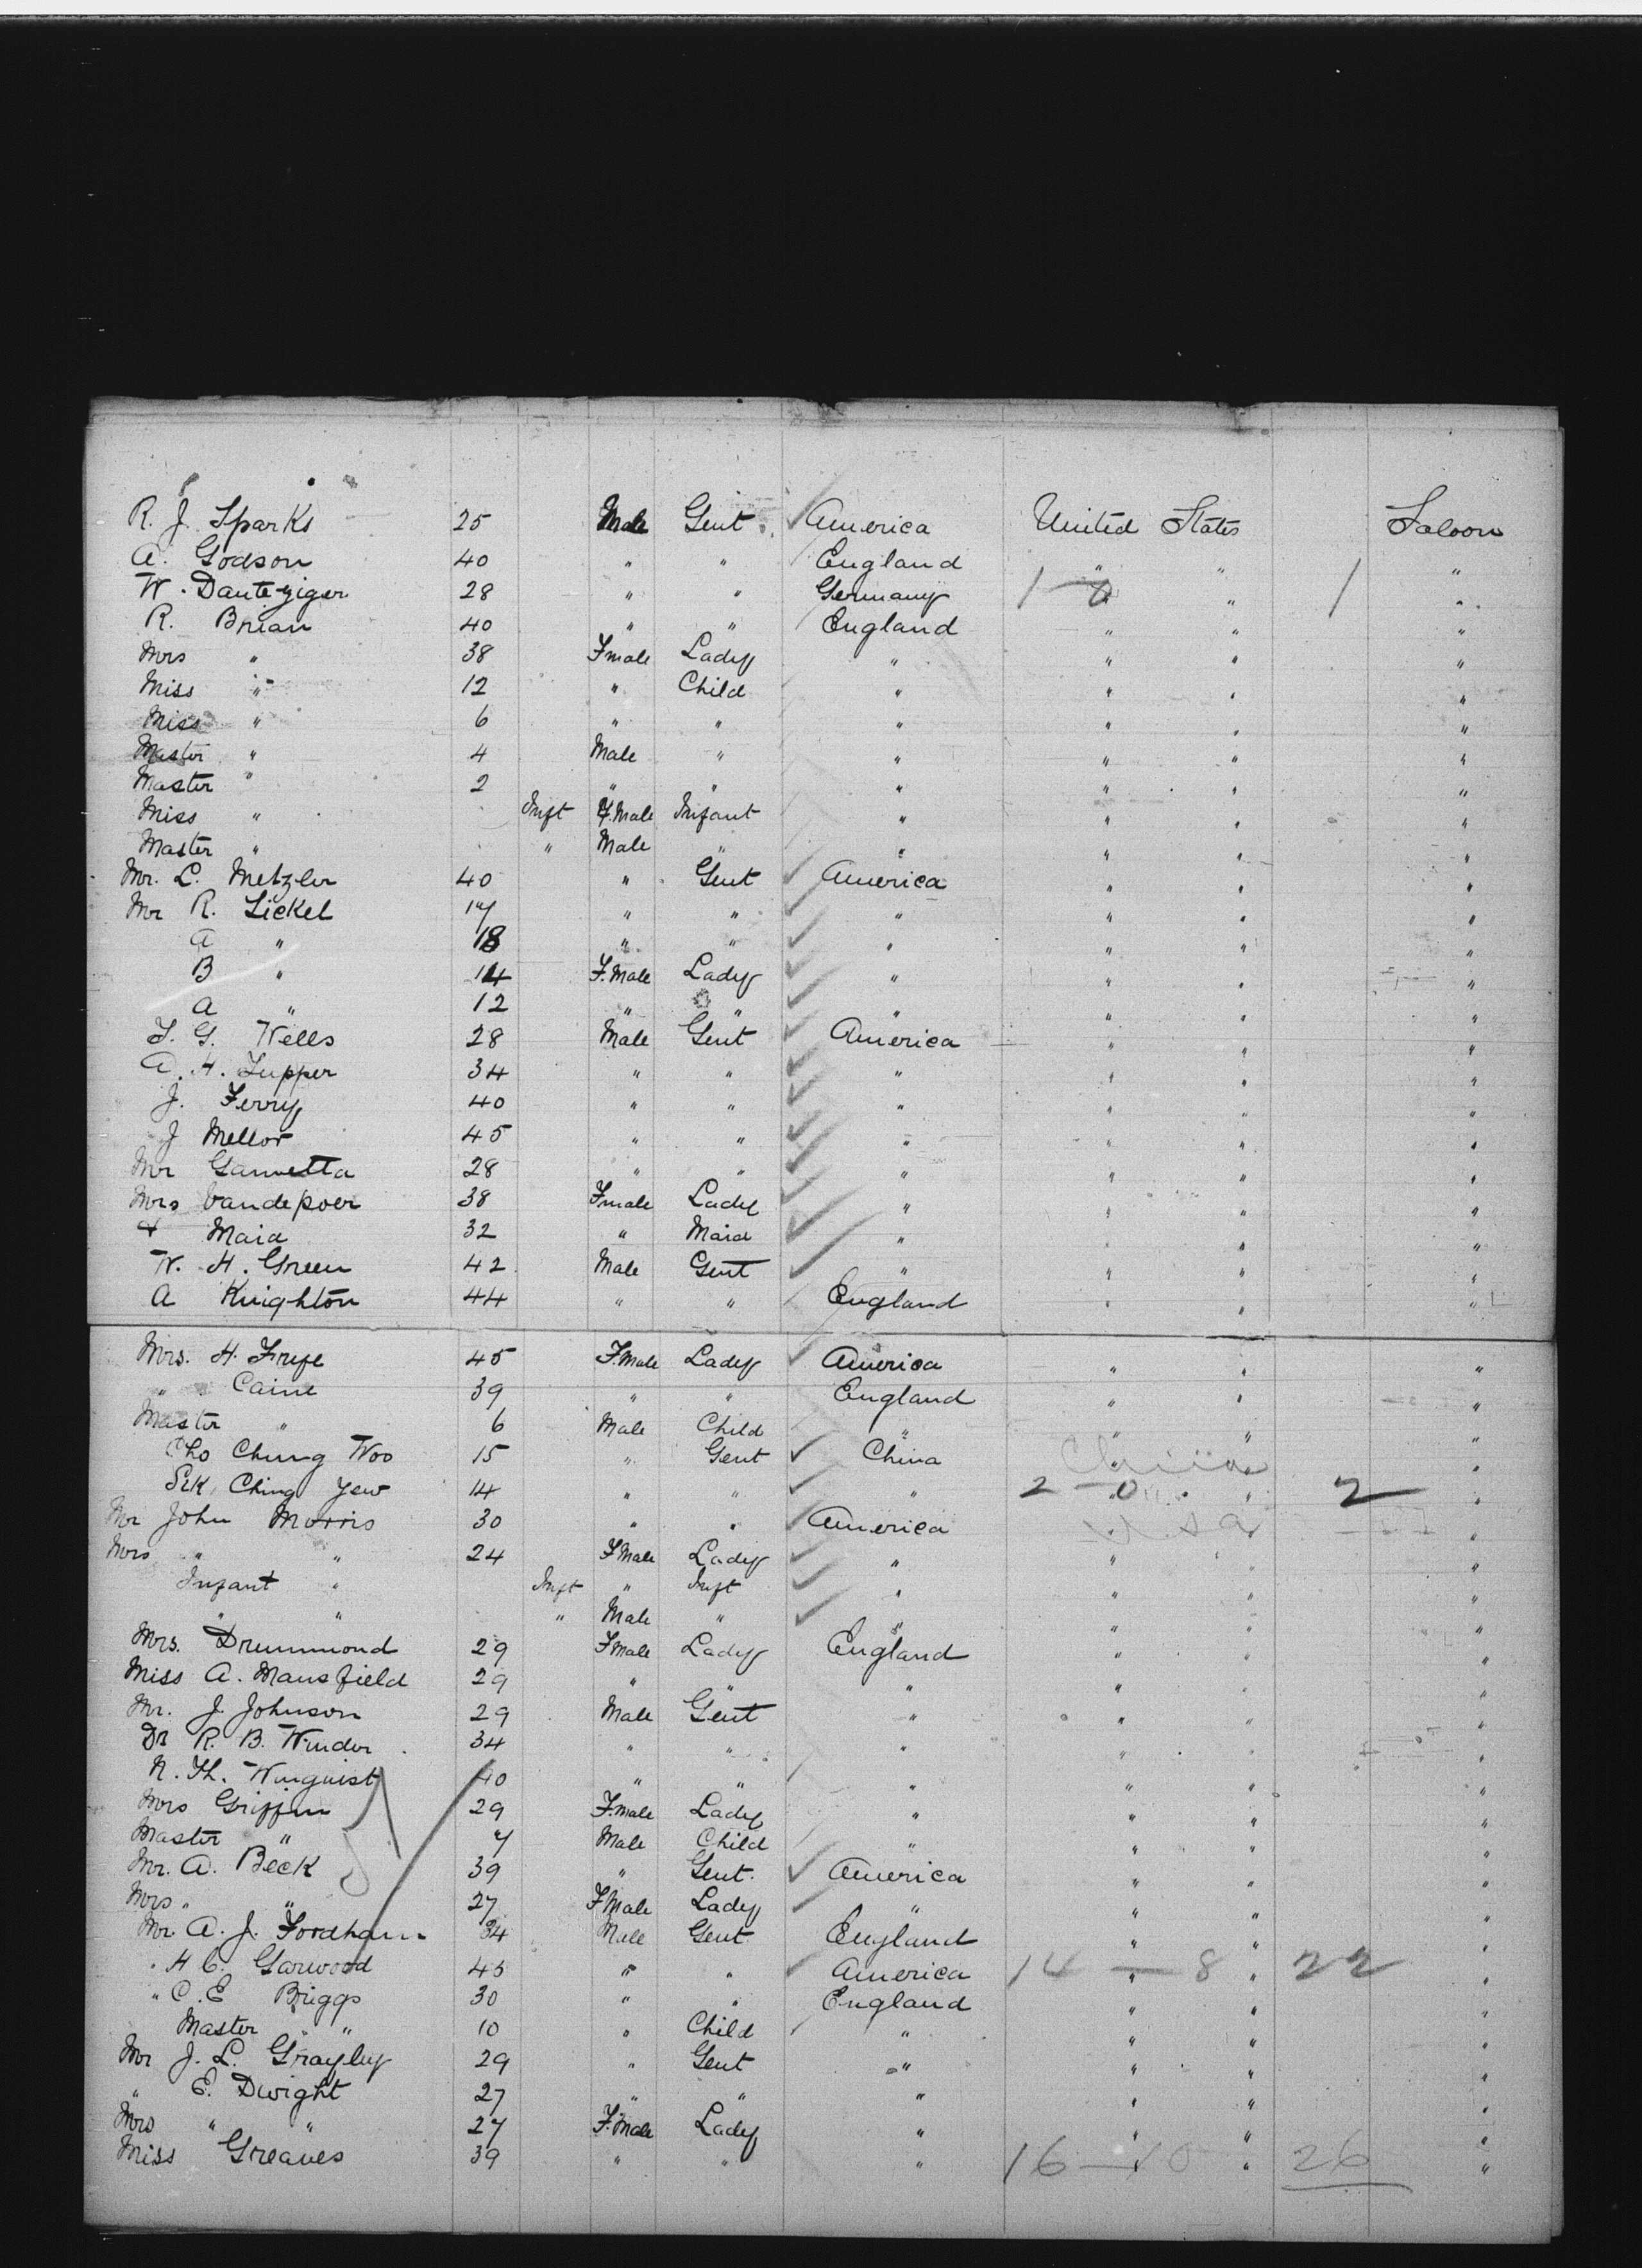 R. J. Sparks 25 Male Gent America United States Saloon
A. Godson 40 " " England " " "
W. Dantziger 28 " " Germany 1 - 0 " " 1 "
R. Brian 40 " " England " " "
Mrs " 38 Fmale Lady " " " "
Miss " 12 " Child " " " "
Miss " 6 " " " " " "
Master " 4 Male " " " " "
Master " 2 " " " " " "
Miss " Inft F.Male Infant " " " "
Master " " Male " " " " "
Mr. L. Metzler 40 " Gent America " " "
Mr R. Sickel 17 " " " " " "
A " 18 " " " " " "
B " 14 F.Male Lady " " " "
A " 12 " " " " " "
F. G. Wells 28 Male Gent America " " "
A. H. Tupper 34 " " " " " "
J. Ferry 40 " " " " " "
J Mellor 45 " " " " " "
Mr Gannetta 28 " " " " " "
Mrs Vandepoer 38 Fmale Lady " " " "
& Maid 32 " Maid " " " "
W. H. Green 42 Male Gent " " " "
A Knighton 44 " " England " " "
Mrs. H. Frye 45 F.Male Lady America " " "
" Caine 39 " " England " " "
Master " 6 Male Child " " " "
Cho Chung Woo 15 " Gent China China " " "
Sik Ching Yew 14 " " " 2 - 0 " " 2 "
Mr John Morris 30 " " America U.S.A " " "
Mrs " " 24 FMale Lady " " " "
Infant " Inft " Inft " " " "
" " " Male " " " " "
Mrs. Drummond 29 Fmale Lady England " " "
Miss A. Mansfield 29 " " " " " "
Mr. J. Johnson 29 Male Gent " " " "
Dr R. B. Winder 34 " " " " " "
N. Th. Winquist 40 " " " " " "
Mrs Griffin 29 F.Male Lady " " " "
Master " 7 Male Child " " " "
Mr. A. Beck 39 " Gent. America " " "
Mrs " " 27 FMale Lady " " " "
Mr A. J. Fordham 34 Male Gent England " " "
" H C. Garwood 45 " " America 14 - 8 " " 22 "
" C. E Briggs 30 " " England " " "
Master " 10 " Child " " " "
Mr J. L. Grayley 29 " Gent " " " "
" E. Dwight 27 " " " " " "
Mrs " " 27 F.Male Lady " " " "
Miss Greaves 39 " " " 16 - 10 " " 26 "